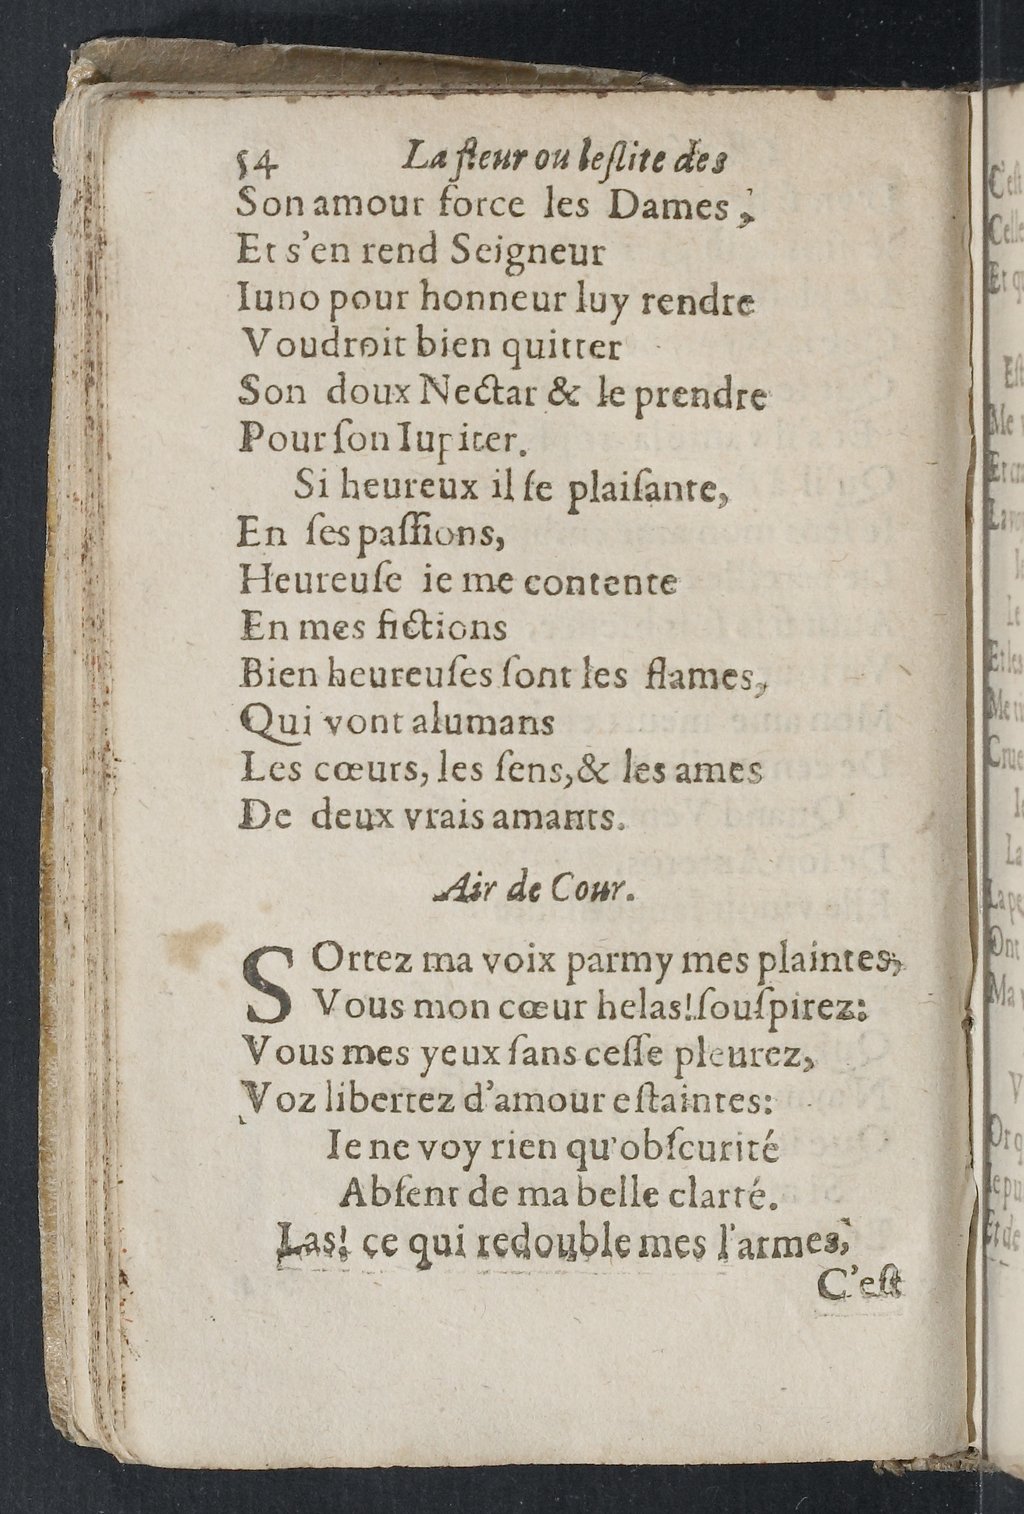 54 La fleur ou leſlite des
Son amour force les Dames,
Et s'en rend Seigneur
Iuno pour honneur luy rendre
Voudroit bien quitter
Son doux Nectar & le prendre
Pour ſon Iupiter.
Si heureux il ſe plaiſante,
En ſes paſſions,
Heureuſe ie me contente
En mes fictions
Bien heureuſes ſont les flames,
Qui vont alumans
Les cœurs, les ſens, & les ames
De deux vrais amants.
Air de Cour.
SOrtez ma voix parmy mes plaintes,
Vous mon cœur helas! ſouſpirez:
Vous mes yeux ſans ceſſe pleurez,
Voz libertez d'amour eſtaintes:
Ie ne voy rien qu'obſcurité
Abſent de ma belle clarté.
Las! ce qui redouble mes l'armes,
C'eſt